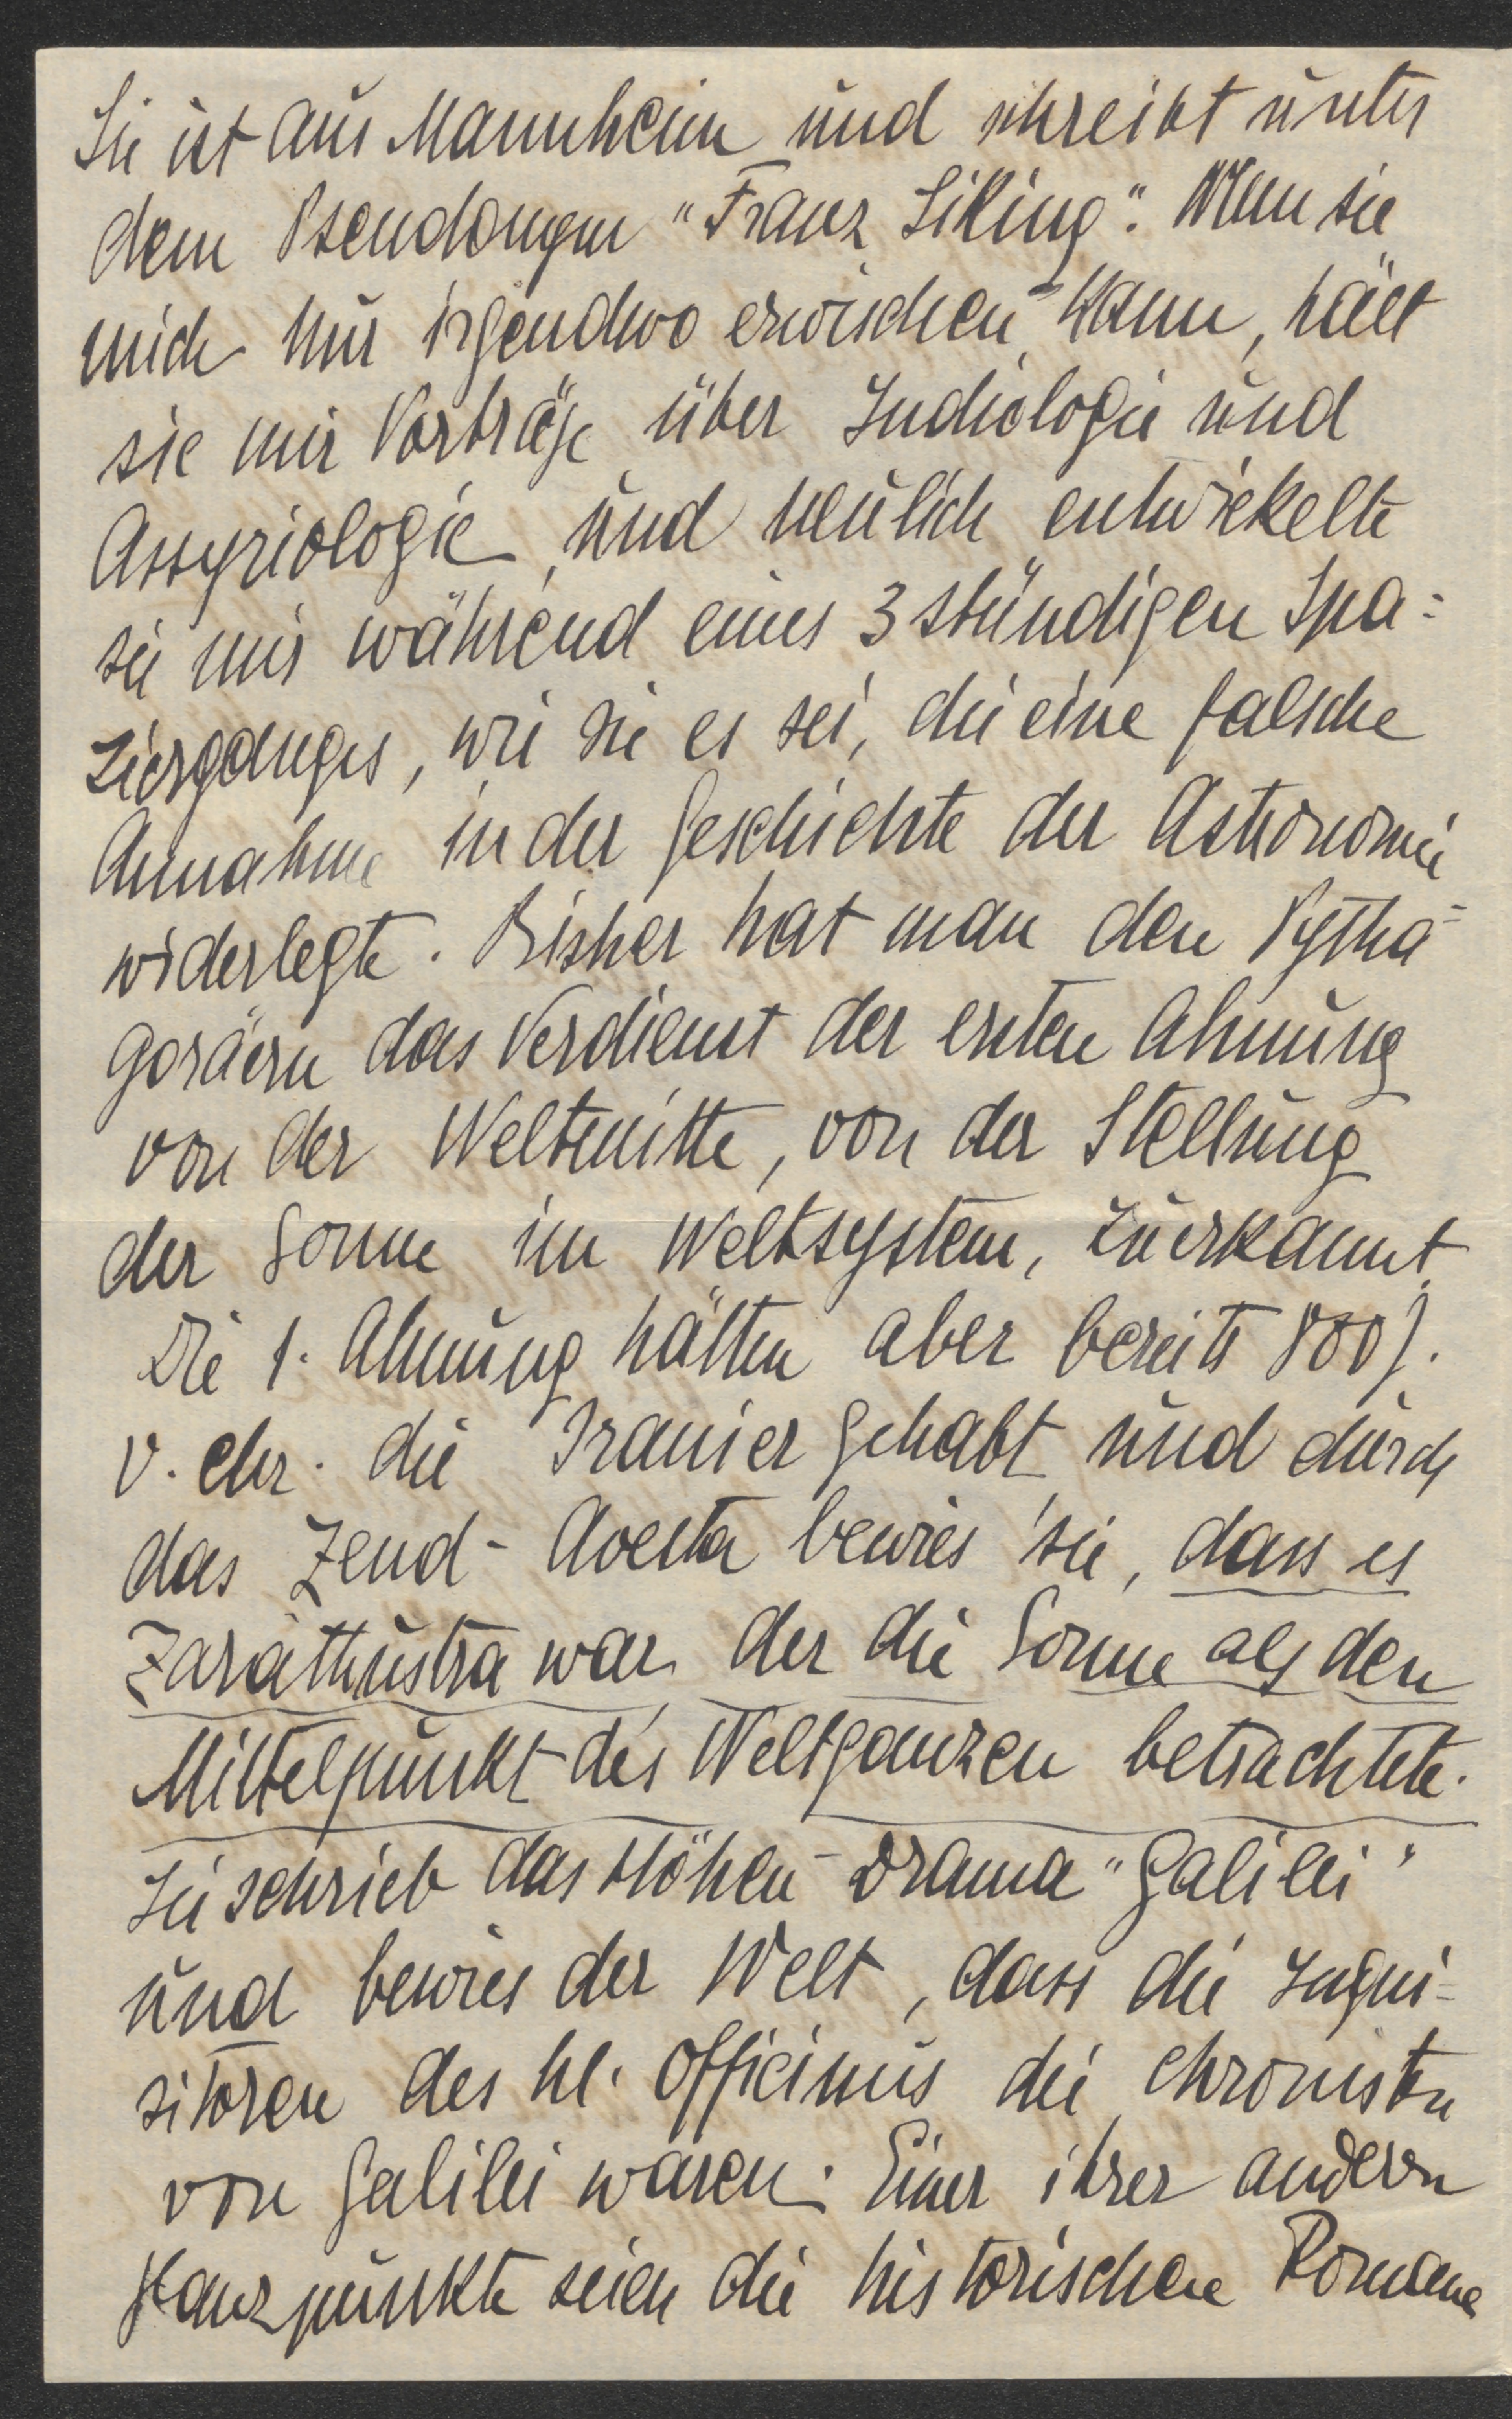 Sie ist aus Mannheim und schreibt unter
dem Pseudonym "Franz Siking". Wenn sie
mich nur irgendwo erwischen kann, hält
sie mir Vorträge über Indiologie und
Assyriologie, und neulich entwickelte
sie mir während eines 3 stündigen Spa=
zierganges, wie sie es sei, die eine falsche
Annahme in der Geschichte der Astronomie
widerlegte. Bisher hat man den Pytha=
goräern das Verdienst der ersten Ahnung
von der Weltmitte, von der Stellung
der Sonne im Weltsystem, zuerkannt.
Die 1. Ahnung hätten aber bereits 800 J.
v. Chr. die Iranier gehabt und durch
das Zend-Avesta bewies sie, dass es
Zarathustra war, der die Sonne als den
Mittelpunkt des Weltganzen betrachtete.
Sie schrieb das Höhen-Drama "Galilei"
und bewies der Welt, dass die Inqui-
sitoren des hl. Officiums die Chronisten
von Galilei waren. Einer ihrer andern
Glanzpunkte seien die historischen Romane